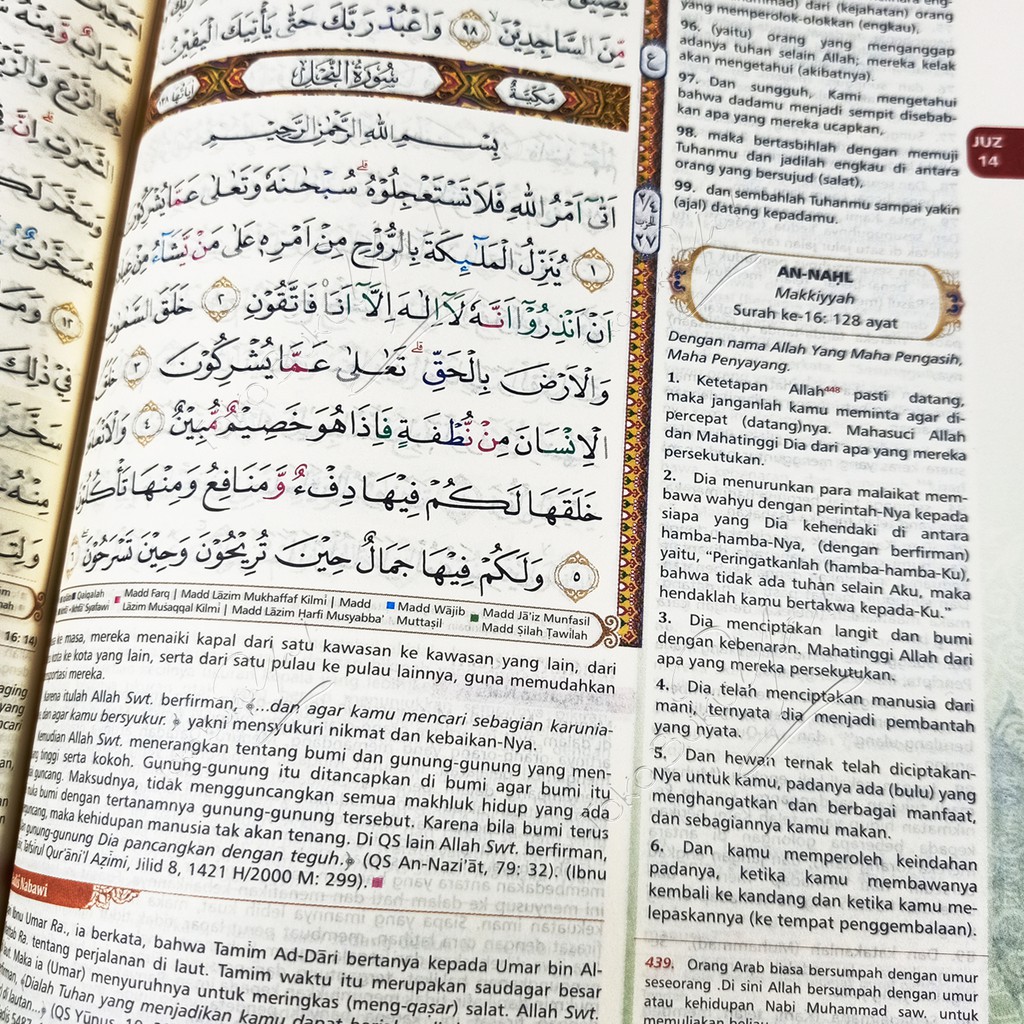 مِّنَ السَّاجِدِيْنَ ۙ ٩٨ وَاعْبُدْ رَبَّكَ حَتّٰى يَأْتِيَكَ الْيَقِيْنُ
مَكِّيَّة سُوْرَةُ النَّحْلِ اٰيَاتُهَا ١٢٨
بِسْمِ اللّٰهِ الرَّحْمٰنِ الرَّحِيْمِ
اَتٰٓى اَمْرُ اللّٰهِ فَلَا تَسْتَعْجِلُوْهُ ۗ سُبْحٰنَهٗ وَتَعٰلٰى عَمَّا يُشْرِكُوْنَ
١ يُنَزِّلُ الْمَلٰۤىِٕكَةَ بِالرُّوْحِ مِنْ اَمْرِهٖ عَلٰى مَنْ يَّشَاۤءُ مِنْ
اَنْ اَنْذِرُوْٓا اَنَّهٗ لَآ اِلٰهَ اِلَّآ اَنَا۠ فَاتَّقُوْنِ ٢ خَلَقَ السَّمٰوٰتِ
وَالْاَرْضَ بِالْحَقِّ ۗ تَعٰلٰى عَمَّا يُشْرِكُوْنَ ٣
الْاِنْسَانَ مِنْ نُّطْفَةٍ فَاِذَا هُوَ خَصِيْمٌ مُّبِيْنٌ ٤ وَالْاَنْعَامَ
خَلَقَهَا لَكُمْ فِيْهَا دِفْءٌ وَّمَنَافِعُ وَمِنْهَا تَأْكُلُوْنَ
٥ وَلَكُمْ فِيْهَا جَمَالٌ حِيْنَ تُرِيْحُوْنَ وَحِيْنَ تَسْرَحُوْنَ
ع
٢/٤
الحزب
٢٧
Qalqalah Madd Farq | Madd Lāzim Mukhaffaf Kilmī | Madd Madd Wājib Madd Jā'iz Munfasil
Lāzim Muṡaqqal Kilmī | Madd Lāzim Ḥarfi Musyabba' Muttaṣil Madd Ṣilah Ṭawīlah
ke masa, mereka menaiki kapal dari satu kawasan ke kawasan yang lain, dari
kota ke kota yang lain, serta dari satu pulau ke pulau lainnya, guna memudahkan
mereka.
itulah Allah Swt. berfirman, ﴾...dan agar kamu mencari sebagian karunia-
dan agar kamu bersyukur.﴿ yakni mensyukuri nikmat dan kebaikan-Nya.
Allah Swt. menerangkan tentang bumi dan gunung-gunung yang men-
tinggi serta kokoh. Gunung-gunung itu ditancapkan di bumi agar bumi itu
guncang. Maksudnya, tidak mengguncangkan semua makhluk hidup yang ada
bumi dengan tertanamnya gunung-gunung tersebut. Karena bila bumi terus
maka kehidupan manusia tak akan tenang. Di QS lain Allah Swt. berfirman,
gunung-gunung Dia pancangkan dengan teguh.﴿ (QS An-Nazi'āt, 79: 32). (Ibnu
Tafsīrul Qur'āni'l Aẓīmi, Jilid 8, 1421 H/2000 M: 299).
Nabawi
Ibnu Umar Ra., ia berkata, bahwa Tamim Ad-Dāri bertanya kepada Umar bin Al-
Ra. tentang perjalanan di laut. Tamim waktu itu merupakan saudagar besar
laut. Maka ia (Umar) menyuruhnya untuk meringkas (meng-qaṣar) salat. Allah Swt.
«Dialah Tuhan yang menjadikan kamu dapat
di lautan...» (QS Yūnus, 10:
dari (kejahatan) orang
yang memperolok-olokkan (engkau),
96. (yaitu) orang yang menganggap
adanya tuhan selain Allah; mereka kelak
akan mengetahui (akibatnya).
97. Dan sungguh, Kami mengetahui
bahwa dadamu menjadi sempit disebab-
kan apa yang mereka ucapkan,
98. maka bertasbihlah dengan memuji
Tuhanmu dan jadilah engkau di antara
orang yang bersujud (salat),
99. dan sembahlah Tuhanmu sampai yakin
(ajal) datang kepadamu.
JUZ
14
AN-NAḤL
Makkiyyah
Surah ke-16: 128 ayat
Dengan nama Allah Yang Maha Pengasih,
Maha Penyayang.
1. Ketetapan Allah⁴⁴⁸ pasti datang,
maka janganlah kamu meminta agar di-
percepat (datang)nya. Mahasuci Allah
dan Mahatinggi Dia dari apa yang mereka
persekutukan.
2. Dia menurunkan para malaikat mem-
bawa wahyu dengan perintah-Nya kepada
siapa yang Dia kehendaki di antara
hamba-hamba-Nya, (dengan berfirman)
yaitu, "Peringatkanlah (hamba-hamba-Ku),
bahwa tidak ada tuhan selain Aku, maka
hendaklah kamu bertakwa kepada-Ku."
3. Dia menciptakan langit dan bumi
dengan kebenaran. Mahatinggi Allah dari
apa yang mereka persekutukan.
4. Dia telah menciptakan manusia dari
mani, ternyata dia menjadi pembantah
yang nyata.
5. Dan hewan ternak telah diciptakan-
Nya untuk kamu, padanya ada (bulu) yang
menghangatkan dan berbagai manfaat,
dan sebagiannya kamu makan.
6. Dan kamu memperoleh keindahan
padanya, ketika kamu membawanya
kembali ke kandang dan ketika kamu me-
lepaskannya (ke tempat penggembalaan).
439. Orang Arab biasa bersumpah dengan umur
seseorang .Di sini Allah bersumpah dengan umur
atau kehidupan Nabi Muhammad saw, untuk
memuliakan